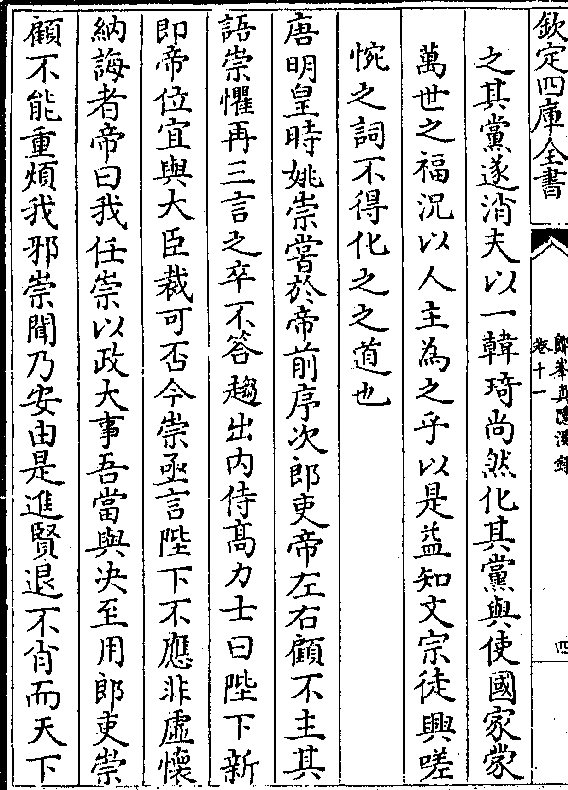 欽定四庫全書
鄮峯真隱漫錄
卷十一
四
之其黨遂消夫以一韓琦尚然化其黨與使國家蒙
萬世之福況以人主為之乎以是益知文宗徒興嗟
惋之詞不得化之之道也
唐明皇時姚崇嘗於帝前序次郎吏帝左右顧不主其
語崇懼再三言之卒不答趨出內侍髙力士曰陛下新
即帝位宜與大臣裁可否今崇亟言陛下不應非虛懷
納誨者帝曰我任崇以政大事吾當與决至用郎吏崇
顧不能重煩我邪崇聞乃安由是進賢退不肖而天下